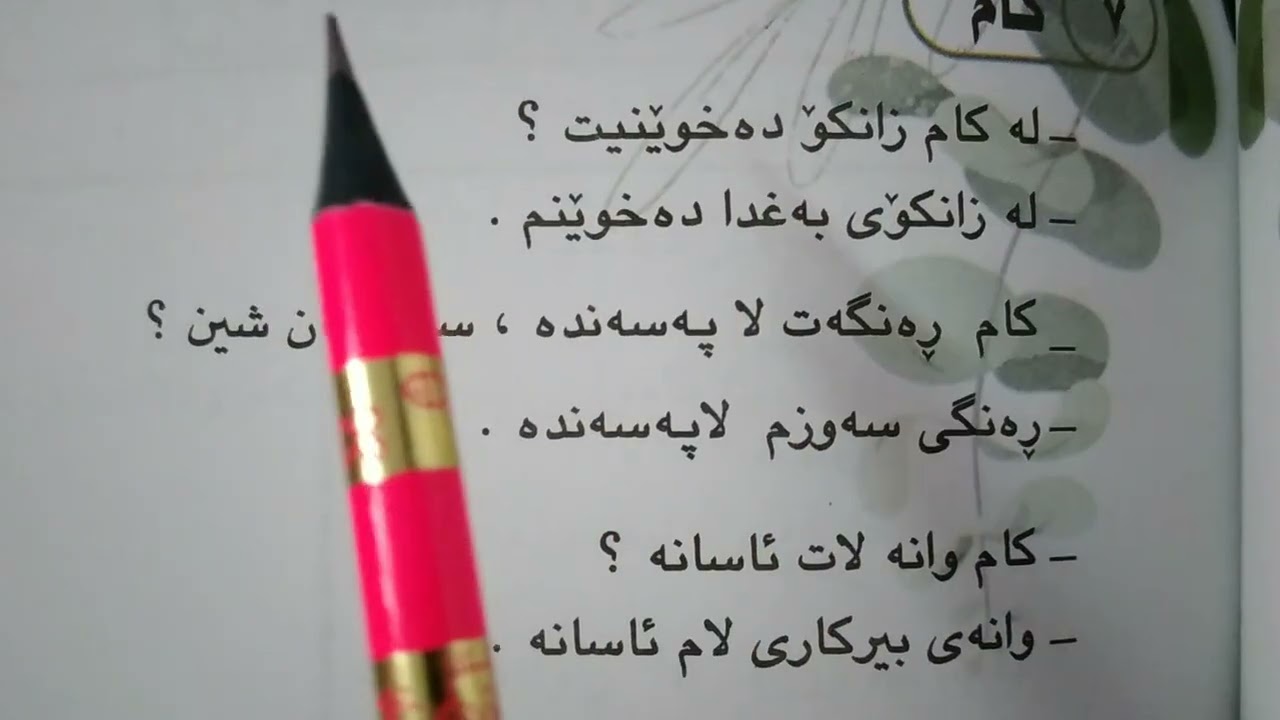 ٧ كام
_ له كام زانكۆ دەخوێنیت ؟
_ له زانكۆی بەغدا دەخوێنم .
_ كام ڕەنگەت لا پەسەندە ، شین ؟
_ ڕەنگی سەوزم لاپەسەندە .
_ كام وانە لات ئاسانە ؟
_ وانەی بیركاری لام ئاسانە .